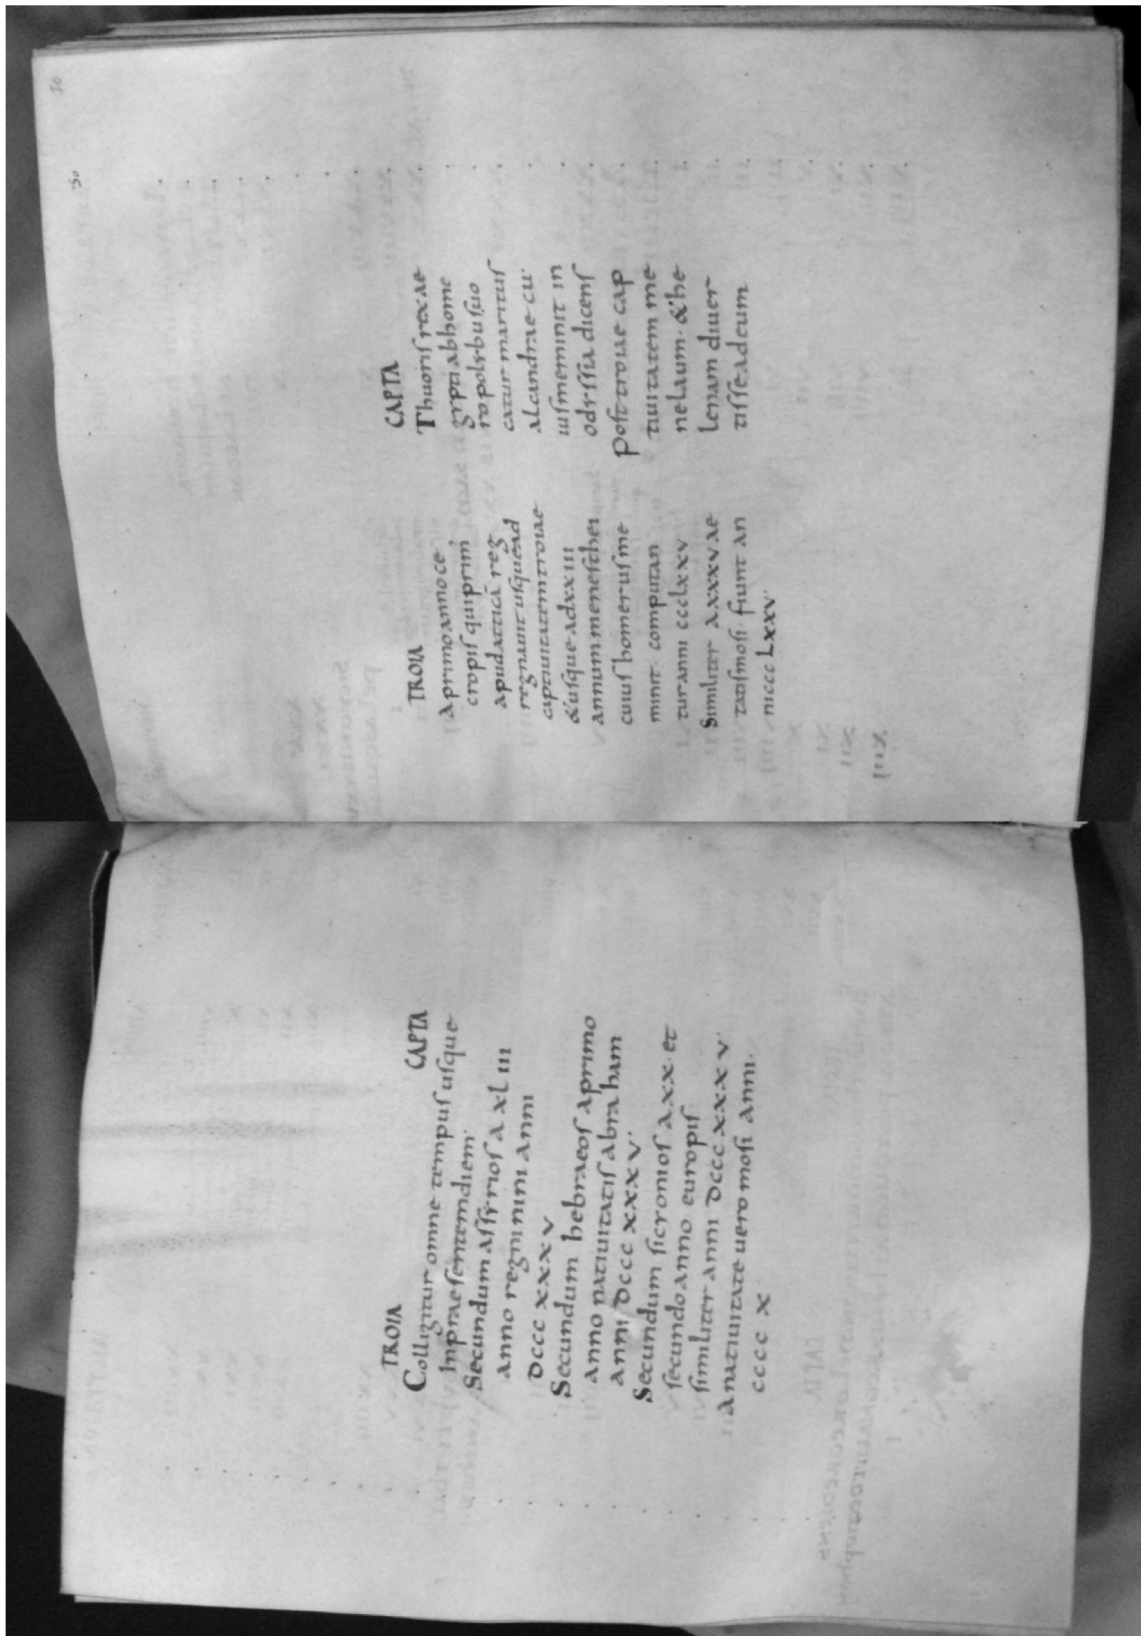 TROIA CAPTA
Colligitur omne tempuſ uſque
Inpraeſentemdiem·
Secundum aſſyrioſ a xl III
anno regni nini anni
DCCC XXXV
Secundum hebraeoſ aprimo
anno natiuitatiſ abraham
anni DCCC XXXV·
Secundum ſicronioſ a XX· et
ſecundo anno europiſ
ſimiliter anni DCCC XXXV·
Anatiuitate uero moſi anni·
CCCC X·
50
50
TROIA
Aprimo anno ce
cropiſ qui prim
apud atticā reg
regnauit uſquead
captiuitatem troiae
&uſque adxxIII
annum meneſthei
cuiuſ homeruſ me
minit· computan
turanni ccclxxv
Similiter axxxvae
tatiſmoſi· fiunt an
nicccLxxv·
CAPTA
Thuoriſ rex ae
gypti abhome
ro polybuſ uo
catur marituſ
alcandrae cu·
iuſmeminit in
odyſſia dicenſ
poſt troiae cap
tiuitatem me
nelaum· &he
lenam diuer
tiſſe adeum